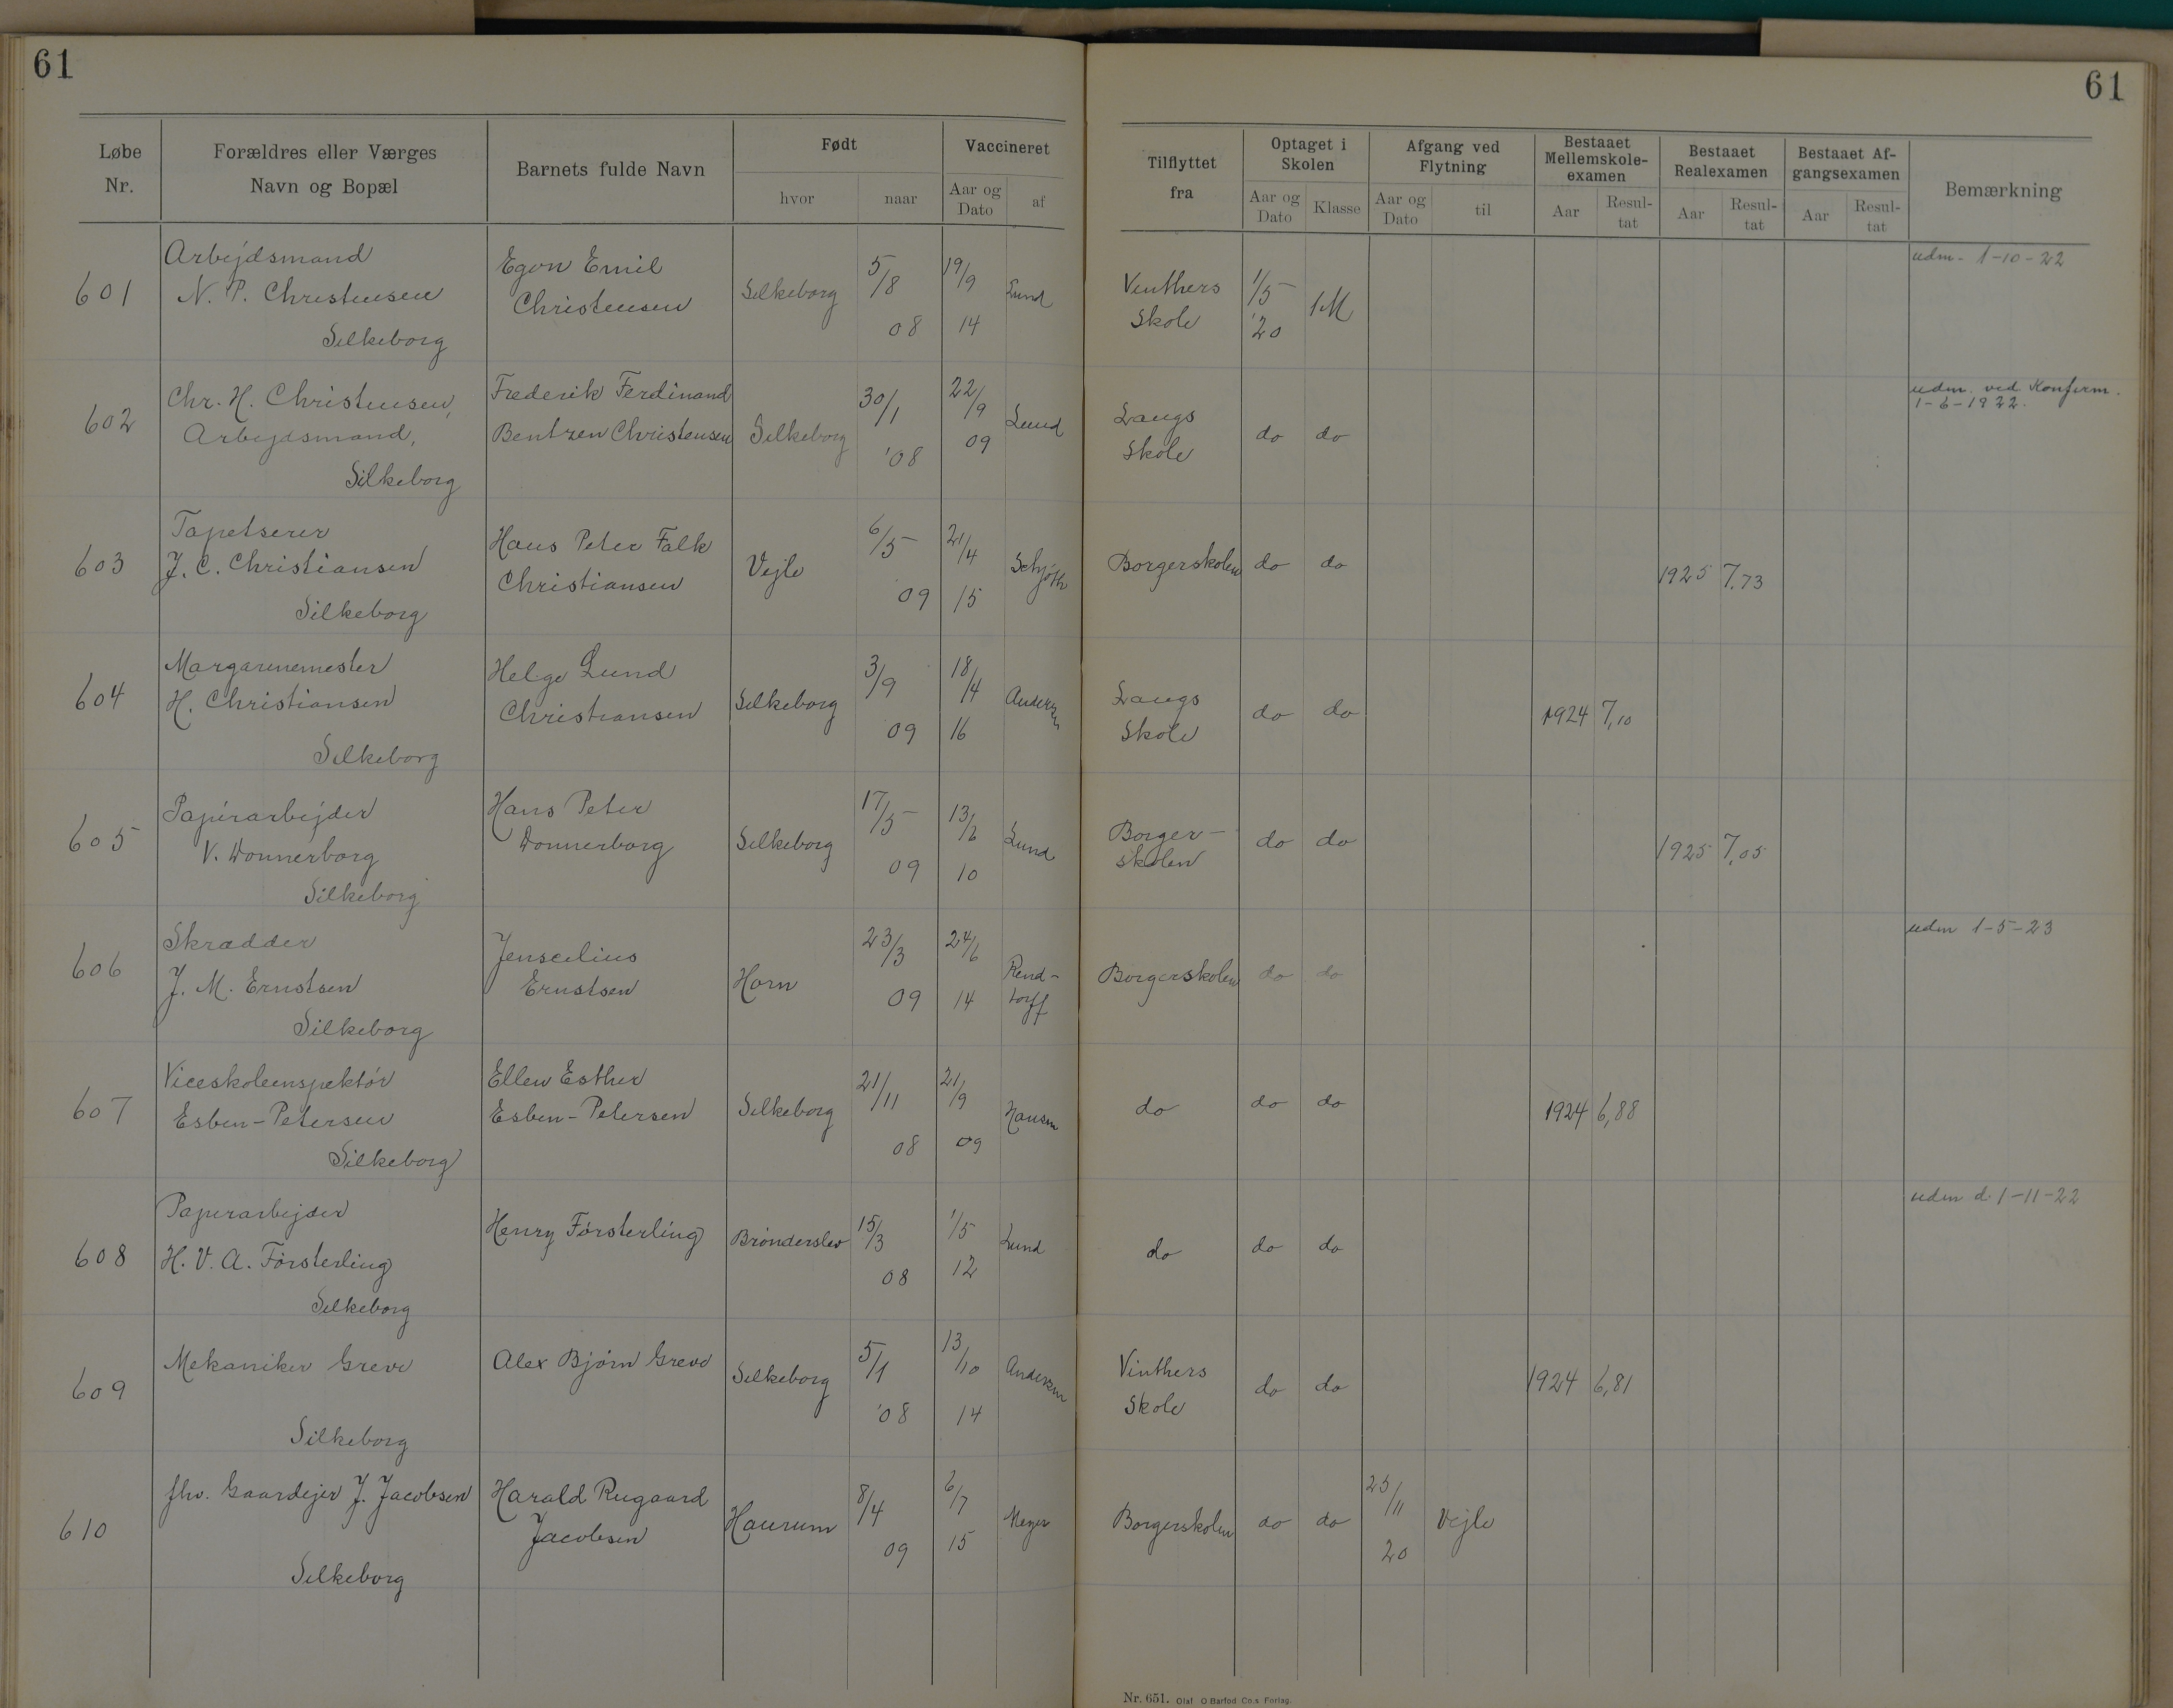 61
61
Løbe Nr.
Forældres eller Værges Navn og Bopæl
Barnets fulde Navn
Født
hvor
naar
Vaccineret
Aar og Dato
af
Tilflyttet fra
Optaget i Skolen
Aar og Dato
Klasse
Afgang ved Flytning
Aar og Dato
til
Bestaaet Mellemskole-examen
Aar
Resul-tat
Bestaaet Realexamen
Aar
Resul-tat
Bestaaet Af-gangsexamen
Aar
Resul-tat
Bemærkning
601 Arbejdsmand N. P. Christensen Silkeborg Egon Emil Christensen Silkeborg 5/8 08 19/9 14 Lund Vinthers Skole 1/5 '20 1M udm. 1-10-22
602 Chr. H. Christensen, Arbejdsmand, Silkeborg Frederik Ferdinand Bentzen Christensen Silkeborg 30/1 '08 22/9 09 Lund Langs Skole do do udm. ved Konfirm. 1-6-1922.
603 Tapetserer J. C. Christiansen Silkeborg Hans Peter Falk Christiansen Vejle 6/5 09 21/4 15 Schjøth Borgerskolen do do 1925 7,73
604 Margarinemester H. Christiansen Silkeborg Helge Lund Christiansen Silkeborg 3/9 09 18/4 16 Andersen Langs Skole do do 1924 7,10
605 Papirarbejder V. Donnerborg Silkeborg Hans Peter Donnerborg Silkeborg 17/5 09 13/6 10 Lund Borger-skolen do do 1925 7,05
606 Skrædder J. M. Ernstsen Silkeborg Jenscelius Ernstsen Horn 23/3 09 24/6 14 Rend-torff Borgerskolen do do udm 1-5-23
607 Viceskoleinspektør Esben-Petersen Silkeborg Ellen Esther Esben-Petersen Silkeborg 21/11 08 21/9 09 Hansen do do do 1924 6,88
608 Papirarbejder H. V. A. Försterling Silkeborg Henry Försterling Brönderslev 15/3 08 1/5 12 Lund do do do udm d. 1-11-22
609 Mekaniker Greve Silkeborg Alex Bjørn Greve Silkeborg 5/1 '08 13/10 14 Andersen Vinthers Skole do do 1924 6,81
610 fhv. Gaardejer J. Jacobsen Silkeborg Harald Rugaard Jacobsen Haurum 8/4 09 6/7 15 Meyer Borgerskolen do do 25/11 20 Vejle
Nr. 651. Olaf O Barfod Co.s Forlag.